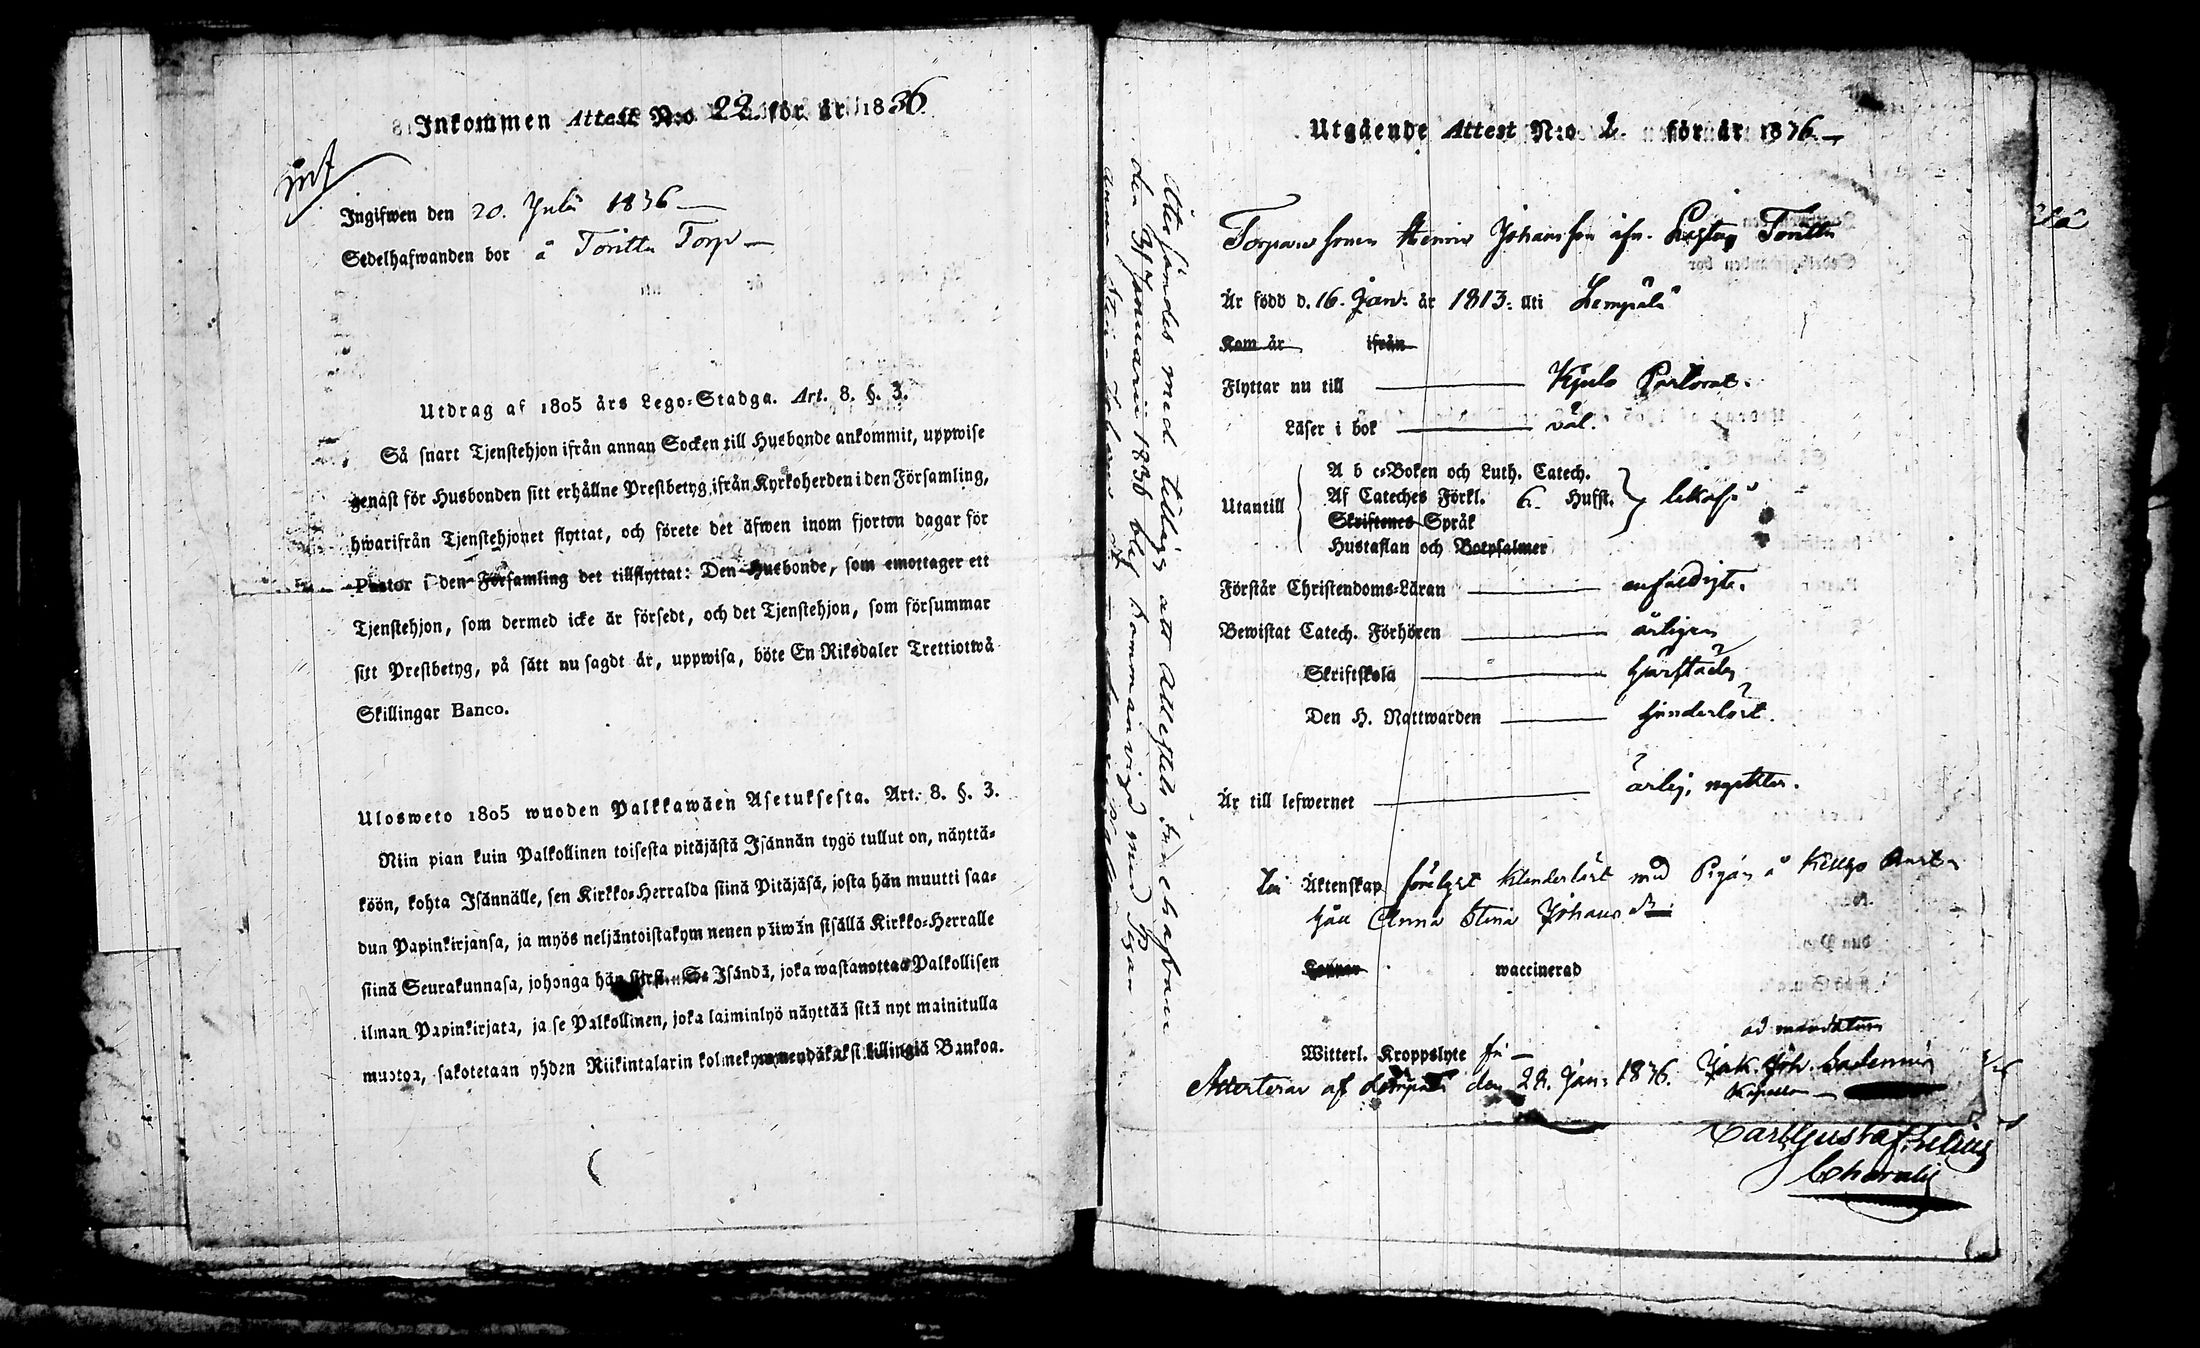 Inkommen Attest N:o 22 för år 1836.
int
Ingifwen den 20. Julii 1836
Sedelhafwanden bor å Toritta Torp
Utdrag af 1805 års Lego-Stadga. Art. 8. §. 3.
Så snart Tjenstehjon ifrån annan Socken till Husbonde ankommit, uppwise
genast för Husbonden sitt erhållne Prestbetyg ifrån Kyrkoherden i den Församling,
hwarifrån Tjenstehjonet flyttat, och förete det äfwen inom fjorton dagar för
Pastor i den Församling det tillflyttat: Den Husbonde, som emottager ett
Tjenstehjon, som dermed icke är försedt, och det Tjenstehjon, som försummar
sitt Prestbetyg, på sätt nu sagdt är, uppwisa, böte En Riksdaler Trettiotwå
Skillingar Banco.
Ulosweto 1805 wuoden Palkkawäen Asetuksesta. Art. 8. §. 3.
Niin pian kuin Palkollinen toisesta pitäjästä Isännän tygö tullut on, näyttä-
köön, kohta Isännälle, sen Kirkko-Herralda siinä Pitäjäsä, josta hän muutti saa-
dun Papinkirjansa, ja myös neljäntoistakymmenen päiwän sisällä Kirkko-Herralle
siinä Seurakunnasa, johonga hän siirsi. Se Isändä, joka wastanottaa Palkollisen
ilman Papinkirjata, ja se Palkollinen, joka laiminlyö näyttää sitä nyt mainitulla
muotoa, sakotetaan yhden Riikintalarin kolmekymmendäkaksi killingiä Bankoa.
Utgående Attest N:o 2. för år 1836.
Torpare sonen Henric Johansson ifr. Toritta
Är född d. 16. Jan: år 1813. uti Lempälä
Kom år ifrån
Flyttar nu till Kjulo Pastorat.
Läser i bok väl.
Utantill
A b c-Boken och Luth. Catech.
Af Cateches Förkl. 6. Hufst.
Skriftenes Språk
Hustaflan och Botpsalmer
Förstår Christendoms-Läran enfaldigt.
Bewistat Catech. Förhören årligen
Skriftskola
Den H. Nattwarden
Är till lefwernet ärlig, nyckter.
Till Äktenskap med Pigan å
Anna Stina Johansdr
Koppor waccinerad
Witterl. Kroppslyte fri
Attesterar af Lempälä den 28. Jan: 1836. Jak. Joh.
ad mandatum
Kapellan
Carl Gustaf
Återsändes med tillägg att Attestets innehafvare
den Januarii 1836 blef sammanvigd med Pigan
Anna Stina Johans dr